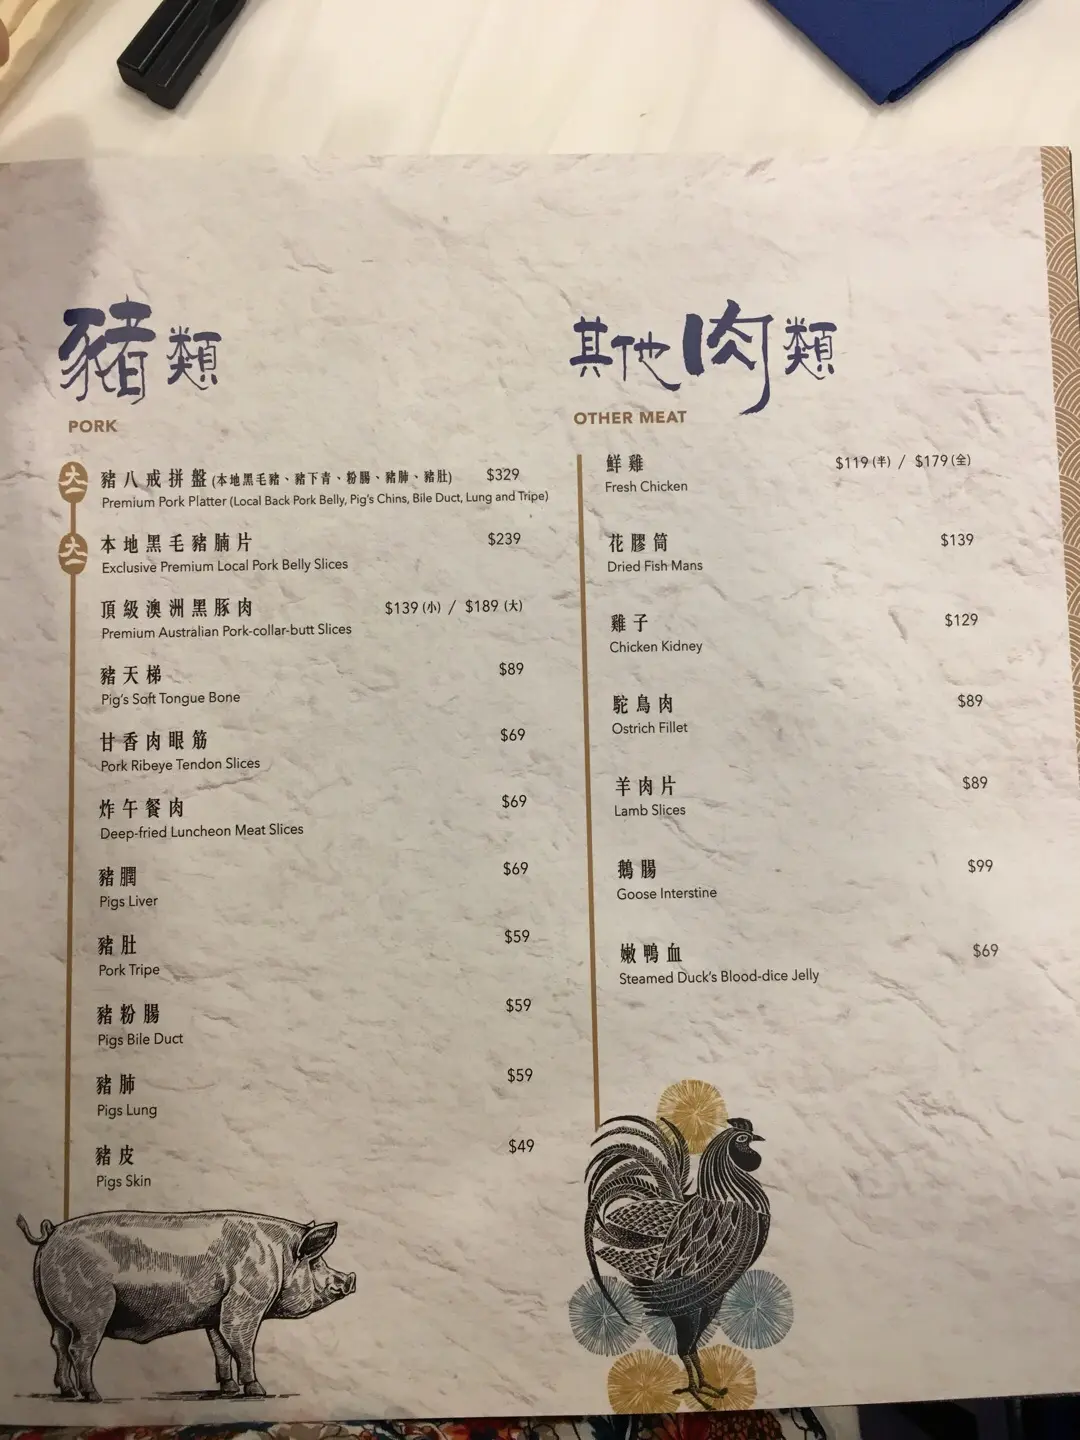 豬類
PORK
豬八戒拼盤 (本地黑毛豬、豬下青、粉腸、豬肺、豬肚) $329
Premium Pork Platter (Local Back Pork Belly, Pig's Chins, Bile Duct, Lung and Tripe)
本地黑毛豬腩片 $239
Exclusive Premium Local Pork Belly Slices
頂級澳洲黑豚肉 $139 (小) / $189 (大)
Premium Australian Pork-collar-butt Slices
豬天梯 $89
Pig's Soft Tongue Bone
甘香肉眼筋 $69
Pork Ribeye Tendon Slices
炸午餐肉 $69
Deep-fried Luncheon Meat Slices
豬膶 $69
Pigs Liver
豬肚 $59
Pork Tripe
豬粉腸 $59
Pigs Bile Duct
豬肺 $59
Pigs Lung
豬皮 $49
Pigs Skin
其他肉類
OTHER MEAT
鮮雞 $119 (半) / $179 (全)
Fresh Chicken
花膠筒 $139
Dried Fish Mans
雞子 $129
Chicken Kidney
鴕鳥肉 $89
Ostrich Fillet
羊肉片 $89
Lamb Slices
鵝腸 $99
Goose Interstine
嫩鴨血 $69
Steamed Duck's Blood-dice Jelly